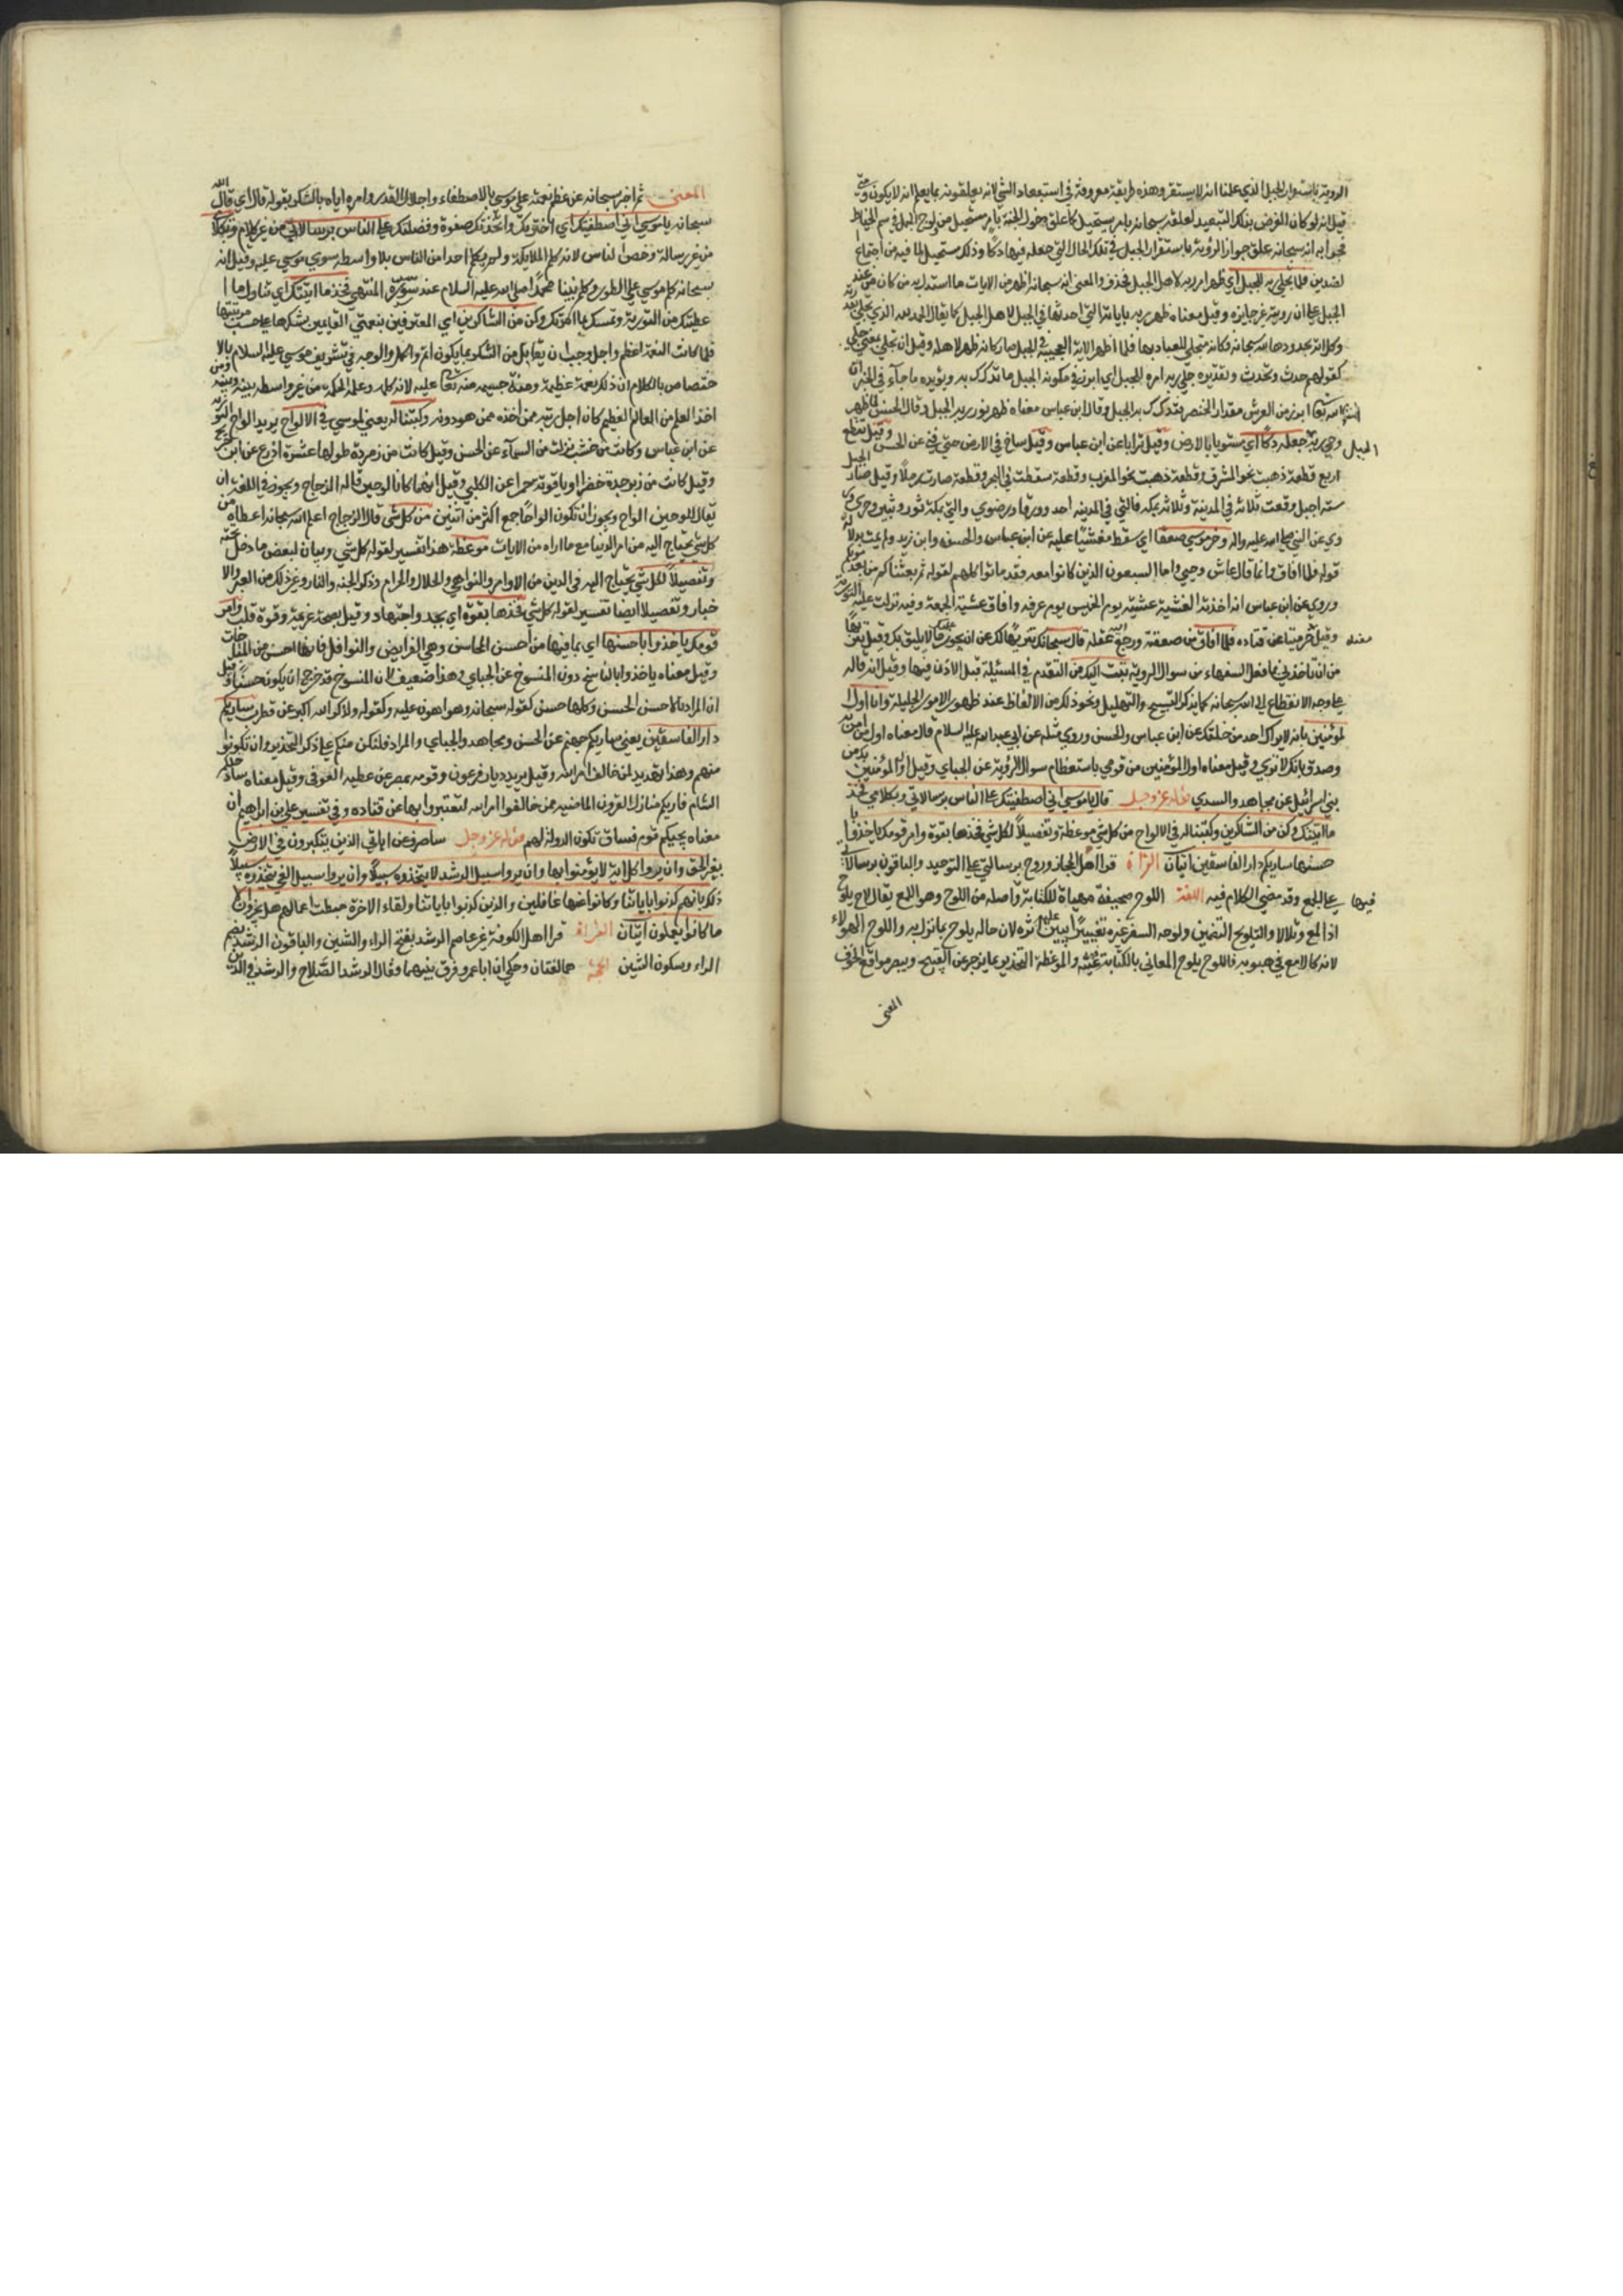 الروية باستقرار الجبل الذي علمنا انه لا يستقر وهذه طريقة معروفة في استبعاد الشي لانه يعلقونه بما يعلم انه لا يكون ومتى
قيل انه لو كان الغرض بذلك التبعيد لعلقه سبحانه بامر يستحيل كما علق دخول الجنة بامر مستحيل من ولوج الجمل في سم الخياط
فجوابه انه سبحانه علق جواز الروية باستقرار الجبل في تلك الحال التي جعله فيها دكا وذلك مستحيل لما فيه من اجتماع
الضدين فلما تجلى ربه للجبل اي ظهر امر ربه لاهل الجبل فحذف والمعنى انه سبحانه اظهر من الايات ما استدل به من كان عند
الجبل على ان رويته غير جايزه وقيل معناه ظهر ربه باياته التي احدثها في الجبل لاهل الجبل كما يقال الحمد لله الذي تجلى لنا بقدرته
وكل اية يجددها الله سبحانه فكانه متجلي للعباد بها فلما اظهر الاية العجيبة في الجبل صار كانه ظهر لاهله وقيل ان تجلى بمعنى جلى
كقولهم حدث وتحدث وتقديره جلى ربه امره للجبل اي ابرز في ملكوته للجبل ما تدكدك به ويويده ما جآء في الخبر ان
الله تعالى ابرز من العرش مقدار الخنصر فتدكدك به الجبل وقال ابن عباس معناه ظهر نور ربه للجبل وقال الحسن لما ظهر
وحي ربه للجبل جعله دكا اي مستويا بالارض وقيل ترابا عن ابن عباس وقيل ساخ في الارض حتى فني عن الحسن وقيل تقطع الجبل
اربع قطع قطعة ذهبت نحو المشرق وقطعة ذهبت نحو المغرب وقطعة سقطت في البحر وقطعة صارت رملا وقيل صار
ستة اجبل وقعت ثلاثة في المدينة وثلاثة بمكة فالتي في المدينه احد وورقا ورضوي والتي بمكة ثور وثبير وحرى
روي عن النبي صلى الله عليه واله وخر موسى صعقا اي سقط مغشيا عليه عن ابن عباس والحسن وابن زيد ولم يمت بدلالة
قوله فلما افاق وانما قال عاش وحيي واما السبعون الذين كانوا معه فقد ماتوا كلهم لقوله ثم بعثناكم من بعد موتكم
وروي عن ابن عباس انه اخذته الغشية عشية يوم الخميس يوم عرفه وافاق عشية الجمعة وفيه نزلت عليه التورية
وقيل خر ميتا عن قتاده فلما افاق من صعقته ورجع اليه عقله قال سبحانك تنزيها لك عن ان يجوز عليك ما لا يليق بك وقيل تنزيها
من ان تاخذني بما فعل السفهاء من سوال الروية تبت اليك من التقدم في المسئلة قبل الاذن فيها وقيل انه قاله
على وجه الانقطاع الى الله سبحانه كما يذكر التسبيح والتهليل ونحو ذلك من الالفاظ عند ظهور الامور الجليلة وانا اول
المؤمنين بانه لا يراك احد من خلقك عن ابن عباس والحسن وروي مثله عن ابي عبد الله عليه السلام قال معناه اول من امن بك
وصدق بانك لا تري وقيل معناه اول المؤمنين من قومي باستعظام سوال الروية عن الجباي وقيل اول المؤمنين بك من
بني اسرائيل عن مجاهد والسدي قوله عز وجل قال يا موسى اني اصطفيتك على الناس برسالاتي وبكلامي فخذ
ما اتيتك وكن من الشاكرين وكتبنا له في الالواح من كل شي موعظة وتفصيلا لكل شي فخذها بقوة وامر قومك ياخذوا با
حسنها ساريكم دار الفاسقين ايتان القراة قرا اهل الحجاز وروح برسالتي على التوحيد والباقون برسالاتي
على الجمع وقد مضى الكلام فيه اللغة اللوح صحيفة مهياة للكتابة واصله من اللوح وهو اللمع يقال لاح يلوح
اذا لمع وتلالا والتلويح التضمين ولوحه السفر غيره تغييرا يبين عليه اثره لان حاله يلوح بما نزل به واللوح الهواء
لانه كاللامع في هبوبه فاللوح يلوح المعاني بالكتابة فيه والموعظة التحذير بما يزجر عن القبيح ويبصر مواقع الخوف
المعنى
المعنى ثم اخبر سبحانه عن عظم نعمته على موسى بالاصطفاء واجلال القدر وامره اياه بالشكر بقوله قال اي قال الله
سبحانه يا موسى اني اصطفيتك اي اخترتك واتخذتك صفوة وفضلتك على الناس برسالاتي من غير كلام وبكلامي
من غير رسالة وخص الناس لانه كلم الملايكة ولم يكلم احدا من الناس بلا واسطه سوى موسى عليه وقيل انه
سبحانه كلم موسى على الطور وكلم نبينا محمدا صلى الله عليه السلام عند سدرة المنتهى فخذ ما اتيتك اي تناول ما ا
عطيتك من التورية وتمسك بما امرتك وكن من الشاكرين اي المعترفين بنعمتي القايمين بشكرها على حسب مرتبتها
فلما كانت النعمة اعظم واجل وجب ان يقابل من الشكر بما يكون اتم واكمل والوجه في تشريف موسى عليه السلام بالا
ختصاص بالكلام ان ذلك نعمة عظيمة ومنة جسيمه منه تعالى عليه لانه كلمه وعلمه الحكمه من غير واسطه بينه وبينه ومن
اخذ العلم من العالم العظيم كان اجل رتبه ممن اخذه ممن هو دونه وكتبنا له يعني لموسى في الالواح يريد الواح التورية
عن ابن عباس وكانت من خشب نزلت من السمآء عن الحسن وقيل كانت من زمردة طولها عشرة اذرع عن ابن جريج
وقيل كانت من زبرجدة خضرا وياقوتة حمرا عن الكلبي وقيل انهما كانا لوحين قاله الزجاج ويجوز في اللغة ان
يقال للوحين الواح ويجوز ان تكون الواحا جمع اكثر من اثنين من كل شي قال الزجاج اعلم الله سبحانه انه اعطاه من
كل شي يحتاج اليه من امر الدنيا مع ما اراه من الايات موعظة هذا تفسير لقوله كل شي وبيان لبعض ما دخل تحته
وتفصيلا لكل شي يحتاج اليه في الدين من الاوامر والنواهي والحلال والحرام وذكر الجنه والنار وغير ذلك من العبر والا
خبار وتفصيلا ايضا تفسير لقوله كل شي فخذها بقوة اي بجد واجتهاد وقيل بصحة عزيمة وقوة قلب وامر
قومك ياخذوا باحسنها اي بما فيها من احسن المحاسن وهي الفرايض والنوافل فانها احسن من المباحات
وقيل معناه ياخذوا بالناسخ دون المنسوخ عن الجباي وهذا ضعيف لان المنسوخ قد خرج ان يكون حسنا وقيل
ان المراد بالاحسن الحسن وكلها حسن كقوله سبحانه وهو اهون عليه وكقوله ولذكر الله اكبر عن قطرب ساريكم
دار الفاسقين يعني ساريكم جهنم عن الحسن ومجاهد والجباي والمراد فلتكن منكم على ذكر لتحذروا ان تكونوا
منهم وهذا تهديد لمن خالف امر الله وقيل يريد ديار فرعون وقومه بمصر عن عطيه العوفى وقيل معناه سادخلكم
الشام فاريكم منازل القرون الماضيه ممن خالفوا امر الله لتعتبروا بها عن قتاده وفي تفسير علي بن ابراهيم ان
معناه يجيكم قوم فساق تكون الدوله لهم قوله عز وجل ساصرف عن اياتي الذين يتكبرون في الارض
بغير الحق وان يروا كل اية لا يؤمنوا بها وان يروا سبيل الرشد لا يتخذوه سبيلا وان يروا سبيل الغي يتخذوه سبيلا
ذلك بانهم كذبوا باياتنا وكانوا عنها غافلين والذين كذبوا باياتنا ولقاء الاخرة حبطت اعمالهم هل يجزون الا
ما كانوا يعملون ايتان القراة قرا اهل الكوفة غير عاصم الرشد بفتح الراء والشين والباقون الرشد بضم
الراء وسكون الشين الحجة هما لغتان وحكي ان ابا عمرو فرق بينهما وقال الرشد الصلاح والرشد في الدين